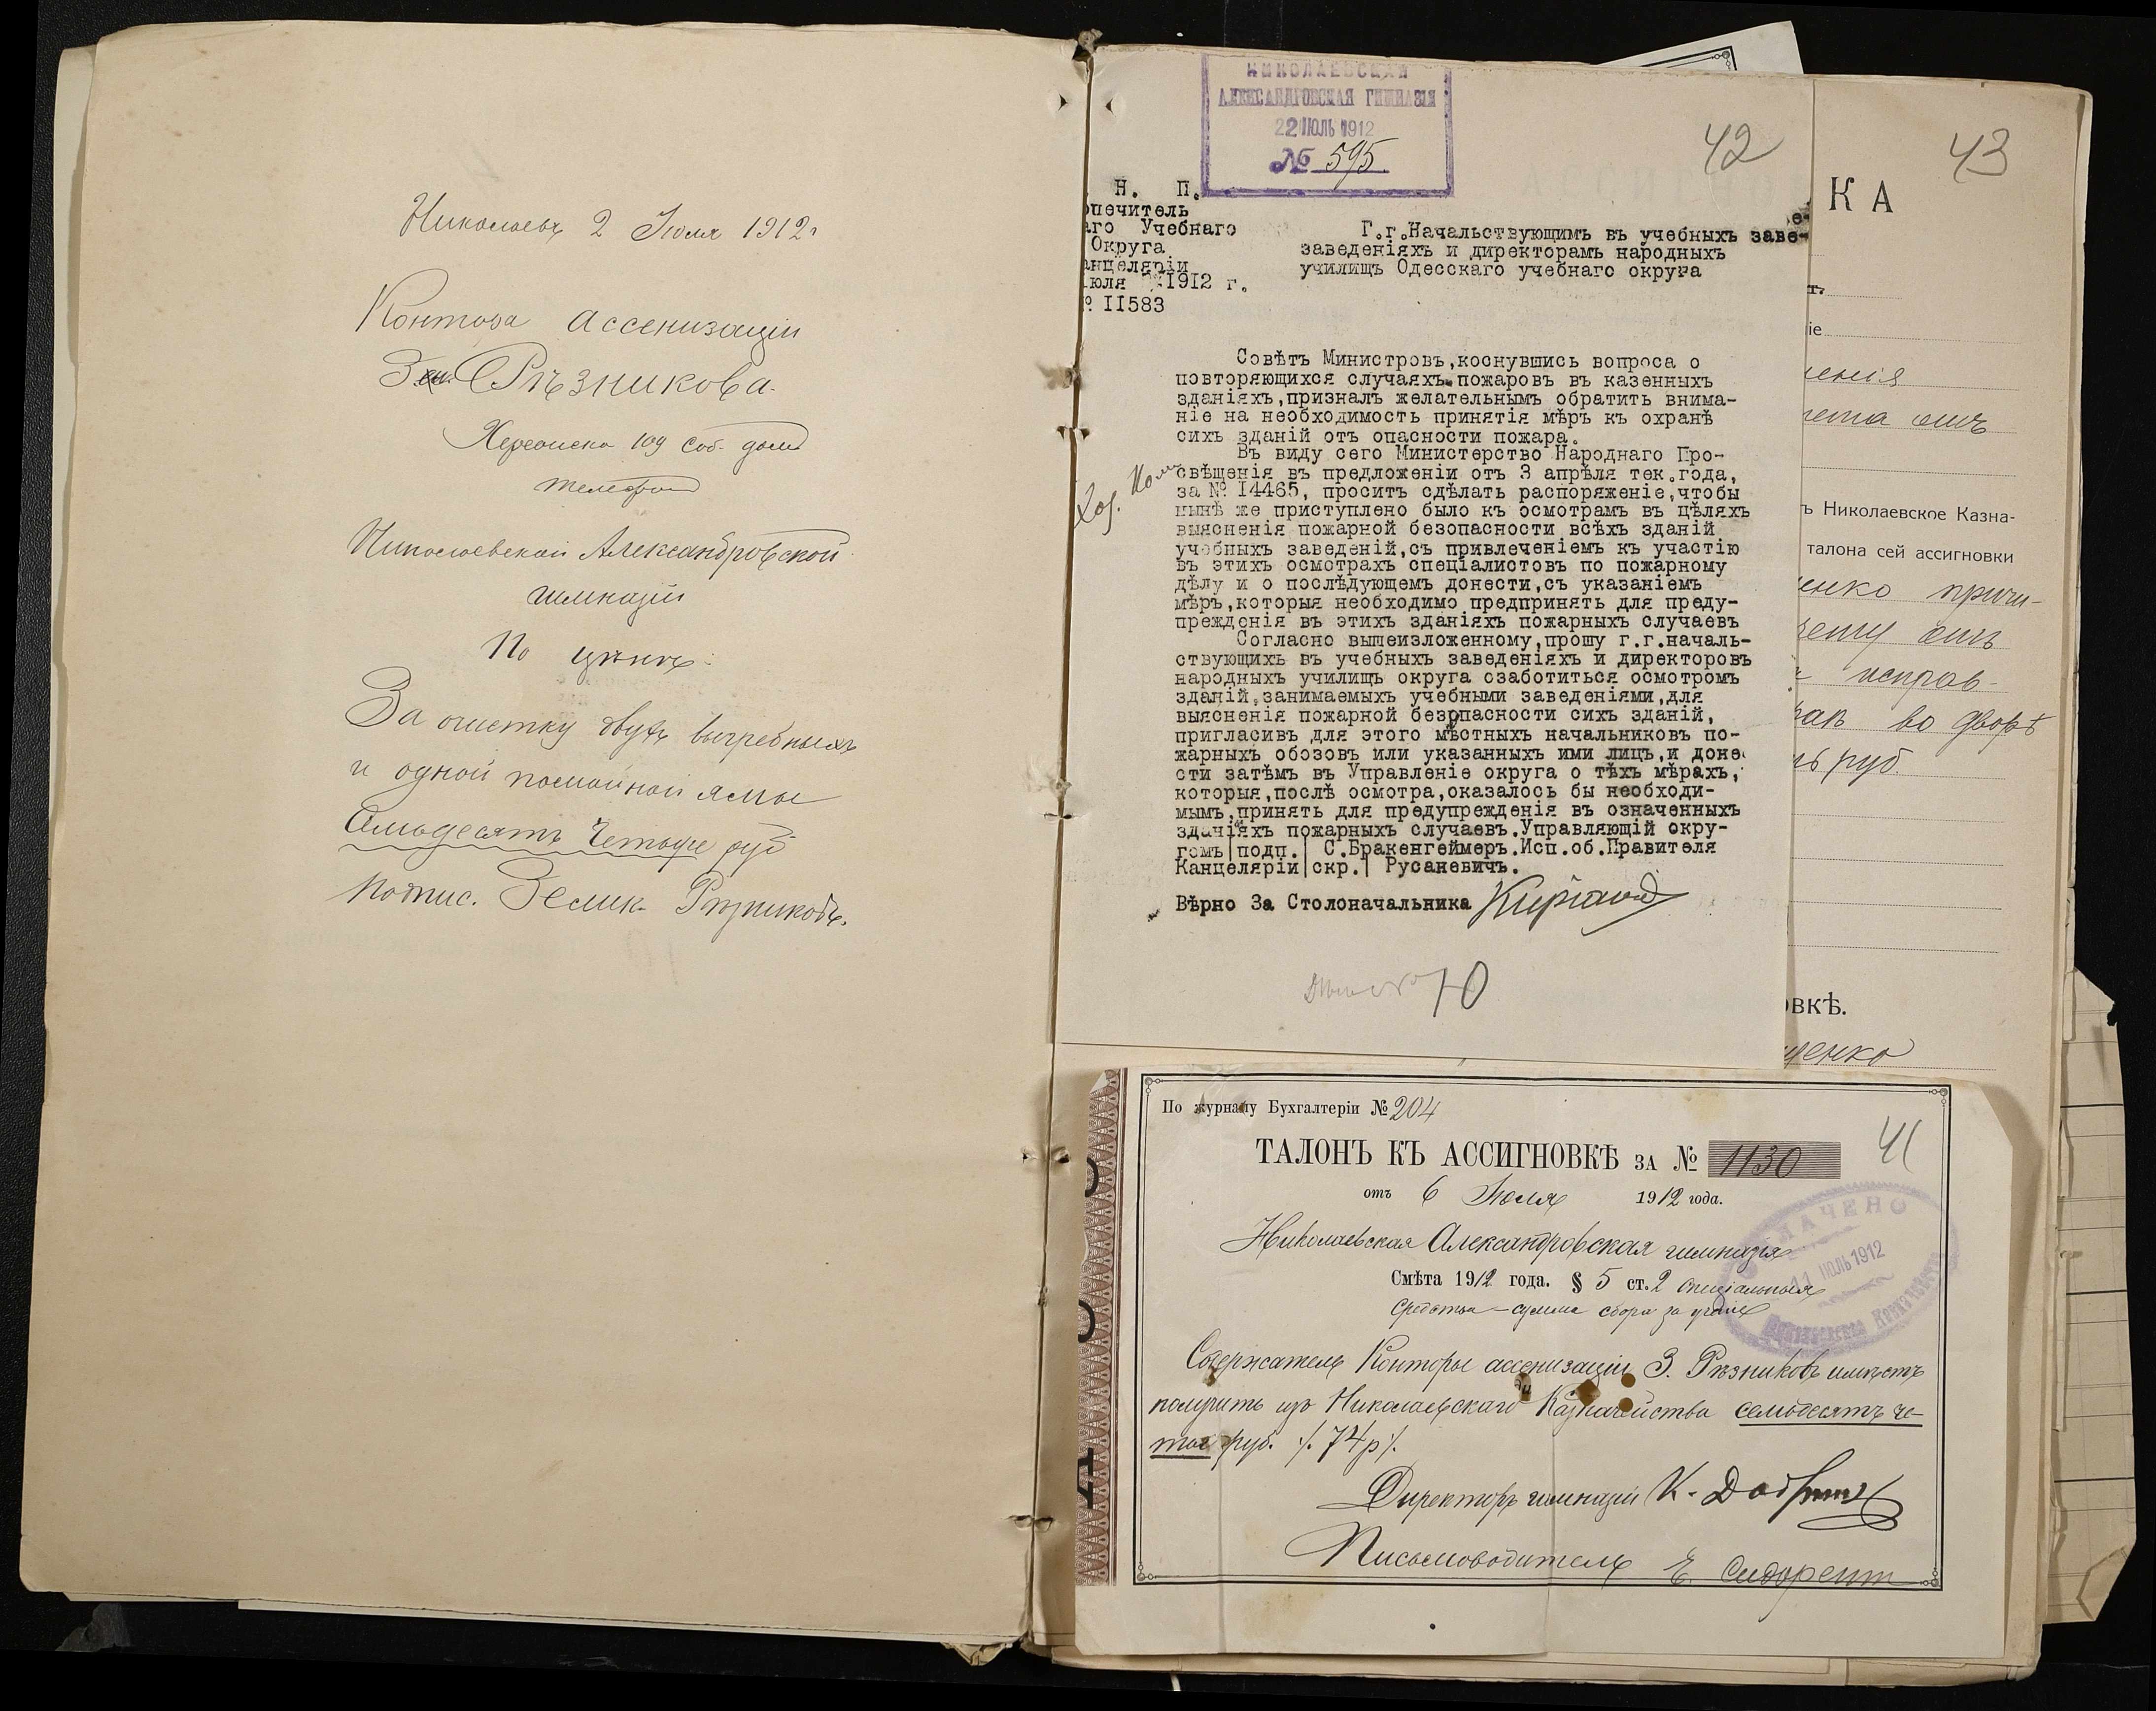 Николаевъ 2 Июля 1912 г
Контора ассенизаціи
Рѣзникова.
109 соб. домъ
телефонъ
Николаевской Александровской
гимназіи
По цѣнѣ:
За очистку двухъ выгребныхъ
и одной помойной ямы
Семьдесятъ четыре руб
Подпис. Зелик Рѣзниковъ.
НИКОЛАЕВСКАЯ
АЛЕКСАНДРОВСКАЯ ГИМНАЗІЯ
22 ІЮЛЬ 1912
№ 595.
42
Н. П.
опечитель
аго Учебнаго
Округа
анцеляріи
юля 1912 г.
№ II583
Г.г.Начальствующимъ въ учебныхъ заве-
заведеніяхъ и директорамъ народныхъ
училищъ Одесскаго учебнаго округа
Совѣтъ Министровъ,коснувшись вопроса о
повторяющихся случаяхъ пожаровъ въ казенныхъ
зданіяхъ,призналъ желательнымъ обратить внима-
ніе на необходимость принятія мѣръ къ охранѣ
сихъ зданій отъ опасности пожара.
Въ виду сего Министерство Народнаго Про-
свѣщенія въ предложеніи отъ 3 апрѣля тек.года,
за № I4465, проситъ сдѣлать распоряженіе,чтобы
нынѣ же приступлено было къ осмотрамъ въ цѣляхъ
выясненія пожарной безопасности всѣхъ зданій
учебныхъ заведеній,съ привлеченіемъ къ участію
въ этихъ осмотрахъ спеціалистовъ по пожарному
дѣлу и о послѣдующемъ донести,съ указаніемъ
мѣръ,которыя необходимо предпринять для преду-
прежденія въ этихъ зданіяхъ пожарныхъ случаевъ
Согласно вышеизложенному,прошу г.г.началь-
ствующихъ въ учебныхъ заведеніяхъ и директоровъ
народныхъ училищъ округа озаботиться осмотромъ
зданій,занимаемыхъ учебными заведеніями,для
выясненія пожарной безопасности сихъ зданій,
пригласивъ для этого мѣстныхъ начальниковъ по-
жарныхъ обозовъ или указанныхъ ими лицъ,и доне-
сти затѣмъ въ Управленіе округа о тѣхъ мѣрахъ,
которыя,послѣ осмотра,оказалось бы необходи-
мымъ принять для предупрежденія въ означенныхъ
зданіяхъ пожарныхъ случаевъ.Управляющій окру-
гомъ|подп.| С.Бракенгеймеръ.Исп.об.Правителя
Канцеляріи|скр.| Русаневичъ.
Вѣрно За Столоначальника
Хоз. Ком
70
43
КА
іе
ченія
чета отъ
ъ Николаевское Казна-
талона сей ассигновки
енко причи-
чету отъ
исправ-
во дворѣ
ть руб.
ОВКѢ.
щенко
По журналу Бухгалтеріи № 204
41
ТАЛОНЪ КЪ АССИГНОВКѢ ЗА № 1130
отъ 6 Июля 1912 года.
Николаевская Александровская гимназія
Смѣта 1912 года. § 5 ст. 2 спеціальныя
средства - сумма сбора за ученіе
ОПЛАЧЕНО
11 ІЮЛЬ 1912
Содержатель Конторы ассенизаціи З. Рѣзниковъ имѣетъ
получить изъ Николаевскаго Казначейства семьдесятъ че-
тыре руб. /.74 р/.
Директоръ гимназіи К.
Письмоводитель Е.